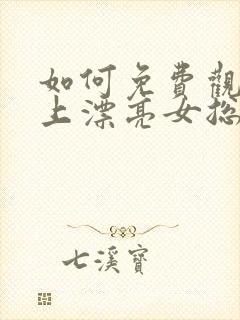 如何免費觀
上漂亮女总
七溪寶